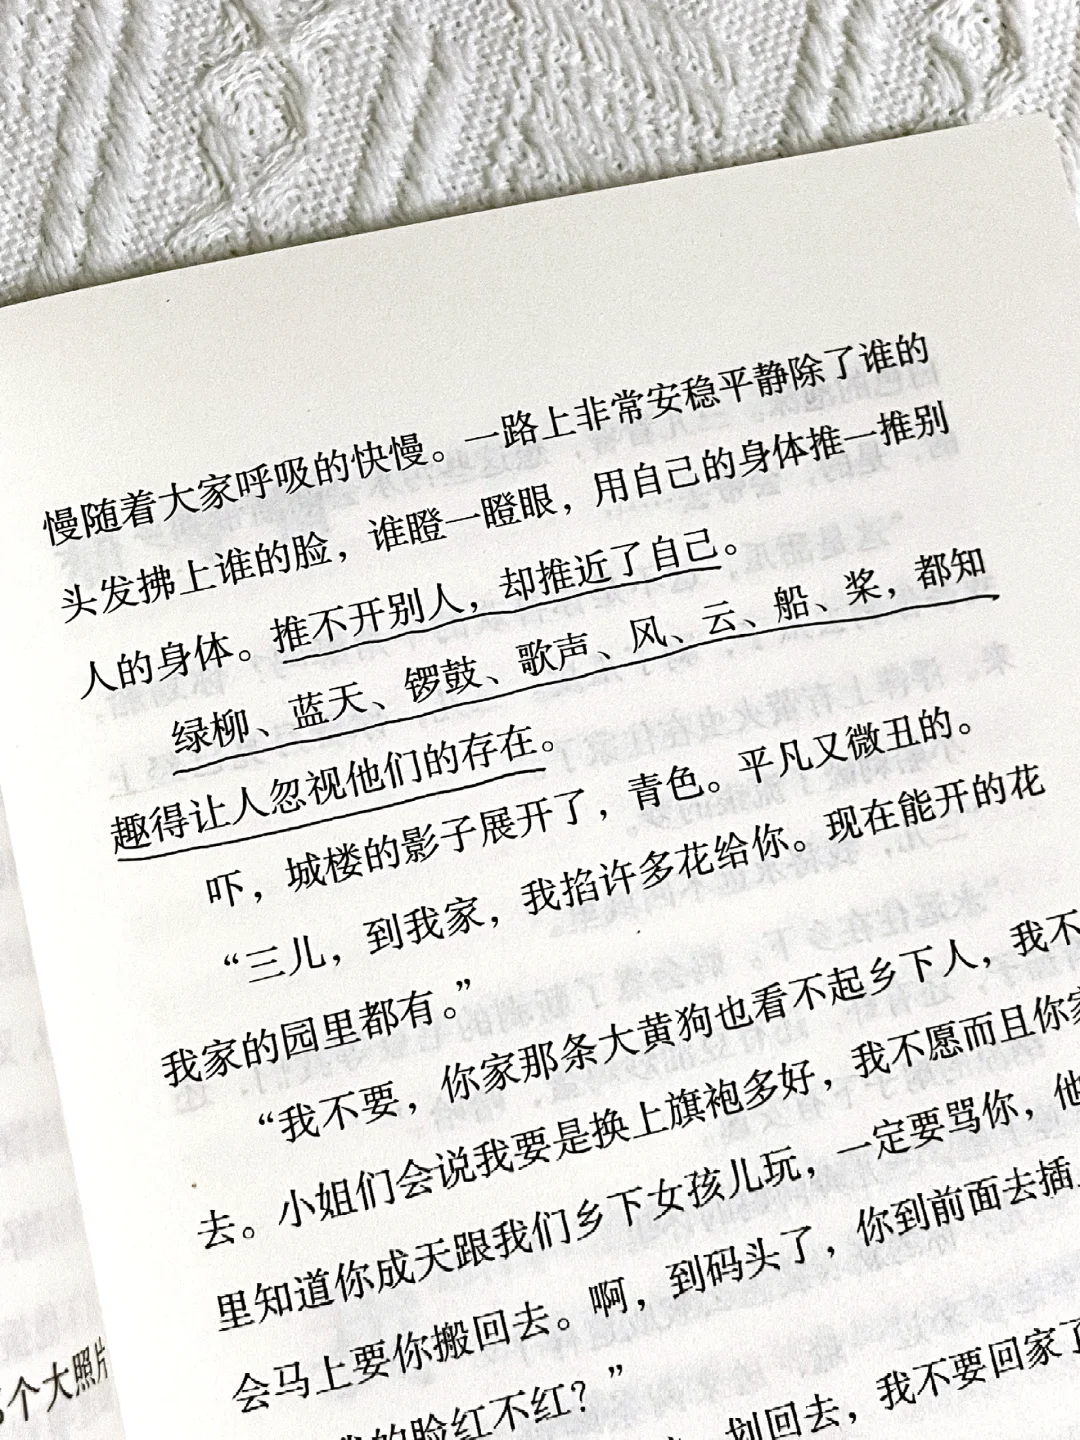 慢随着大家呼吸的快慢。一路上非常安稳平静除了谁的
头发拂上谁的脸，谁瞪一瞪眼，用自己的身体推一推别
人的身体。推不开别人，却推近了自己。
绿柳、蓝天、锣鼓、歌声、风、云、船、桨，都知
趣得让人忽视他们的存在。
吓，城楼的影子展开了，青色。平凡又微丑的。
“三儿，到我家，我掐许多花给你。现在能开的花
我家的园里都有。”
“我不要，你家那条大黄狗也看不起乡下人，我不
去。小姐们会说我要是换上旗袍多好，我不愿而且你家
里知道你成天跟我们乡下女孩儿玩，一定要骂你，他
会马上要你搬回去。啊，到码头了，你到前面去插
的脸红不红？”
划回去，我不要回家了
个大照片